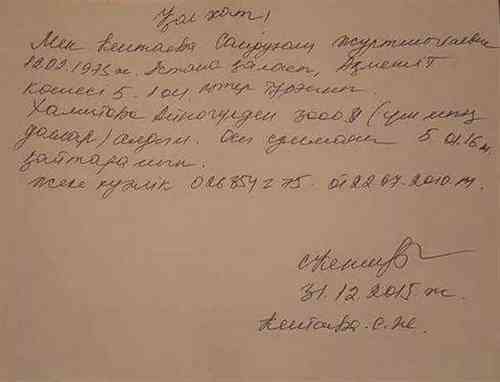 Қол хат,
Мен Кентаева Сайрухан
12.02.1975 ж. Астана қаласы,
көшесі 5. 104 пәтер тұрамын.
Халитова 3000 $ (үш мың
доллар) алдым. Осы сумманы 5 01.16 ж
қайтарамын.
жеке куәлік 026854275. от 22.07.2010 ж.
31.12.2015 ж.
Кентаева. С. Ж.